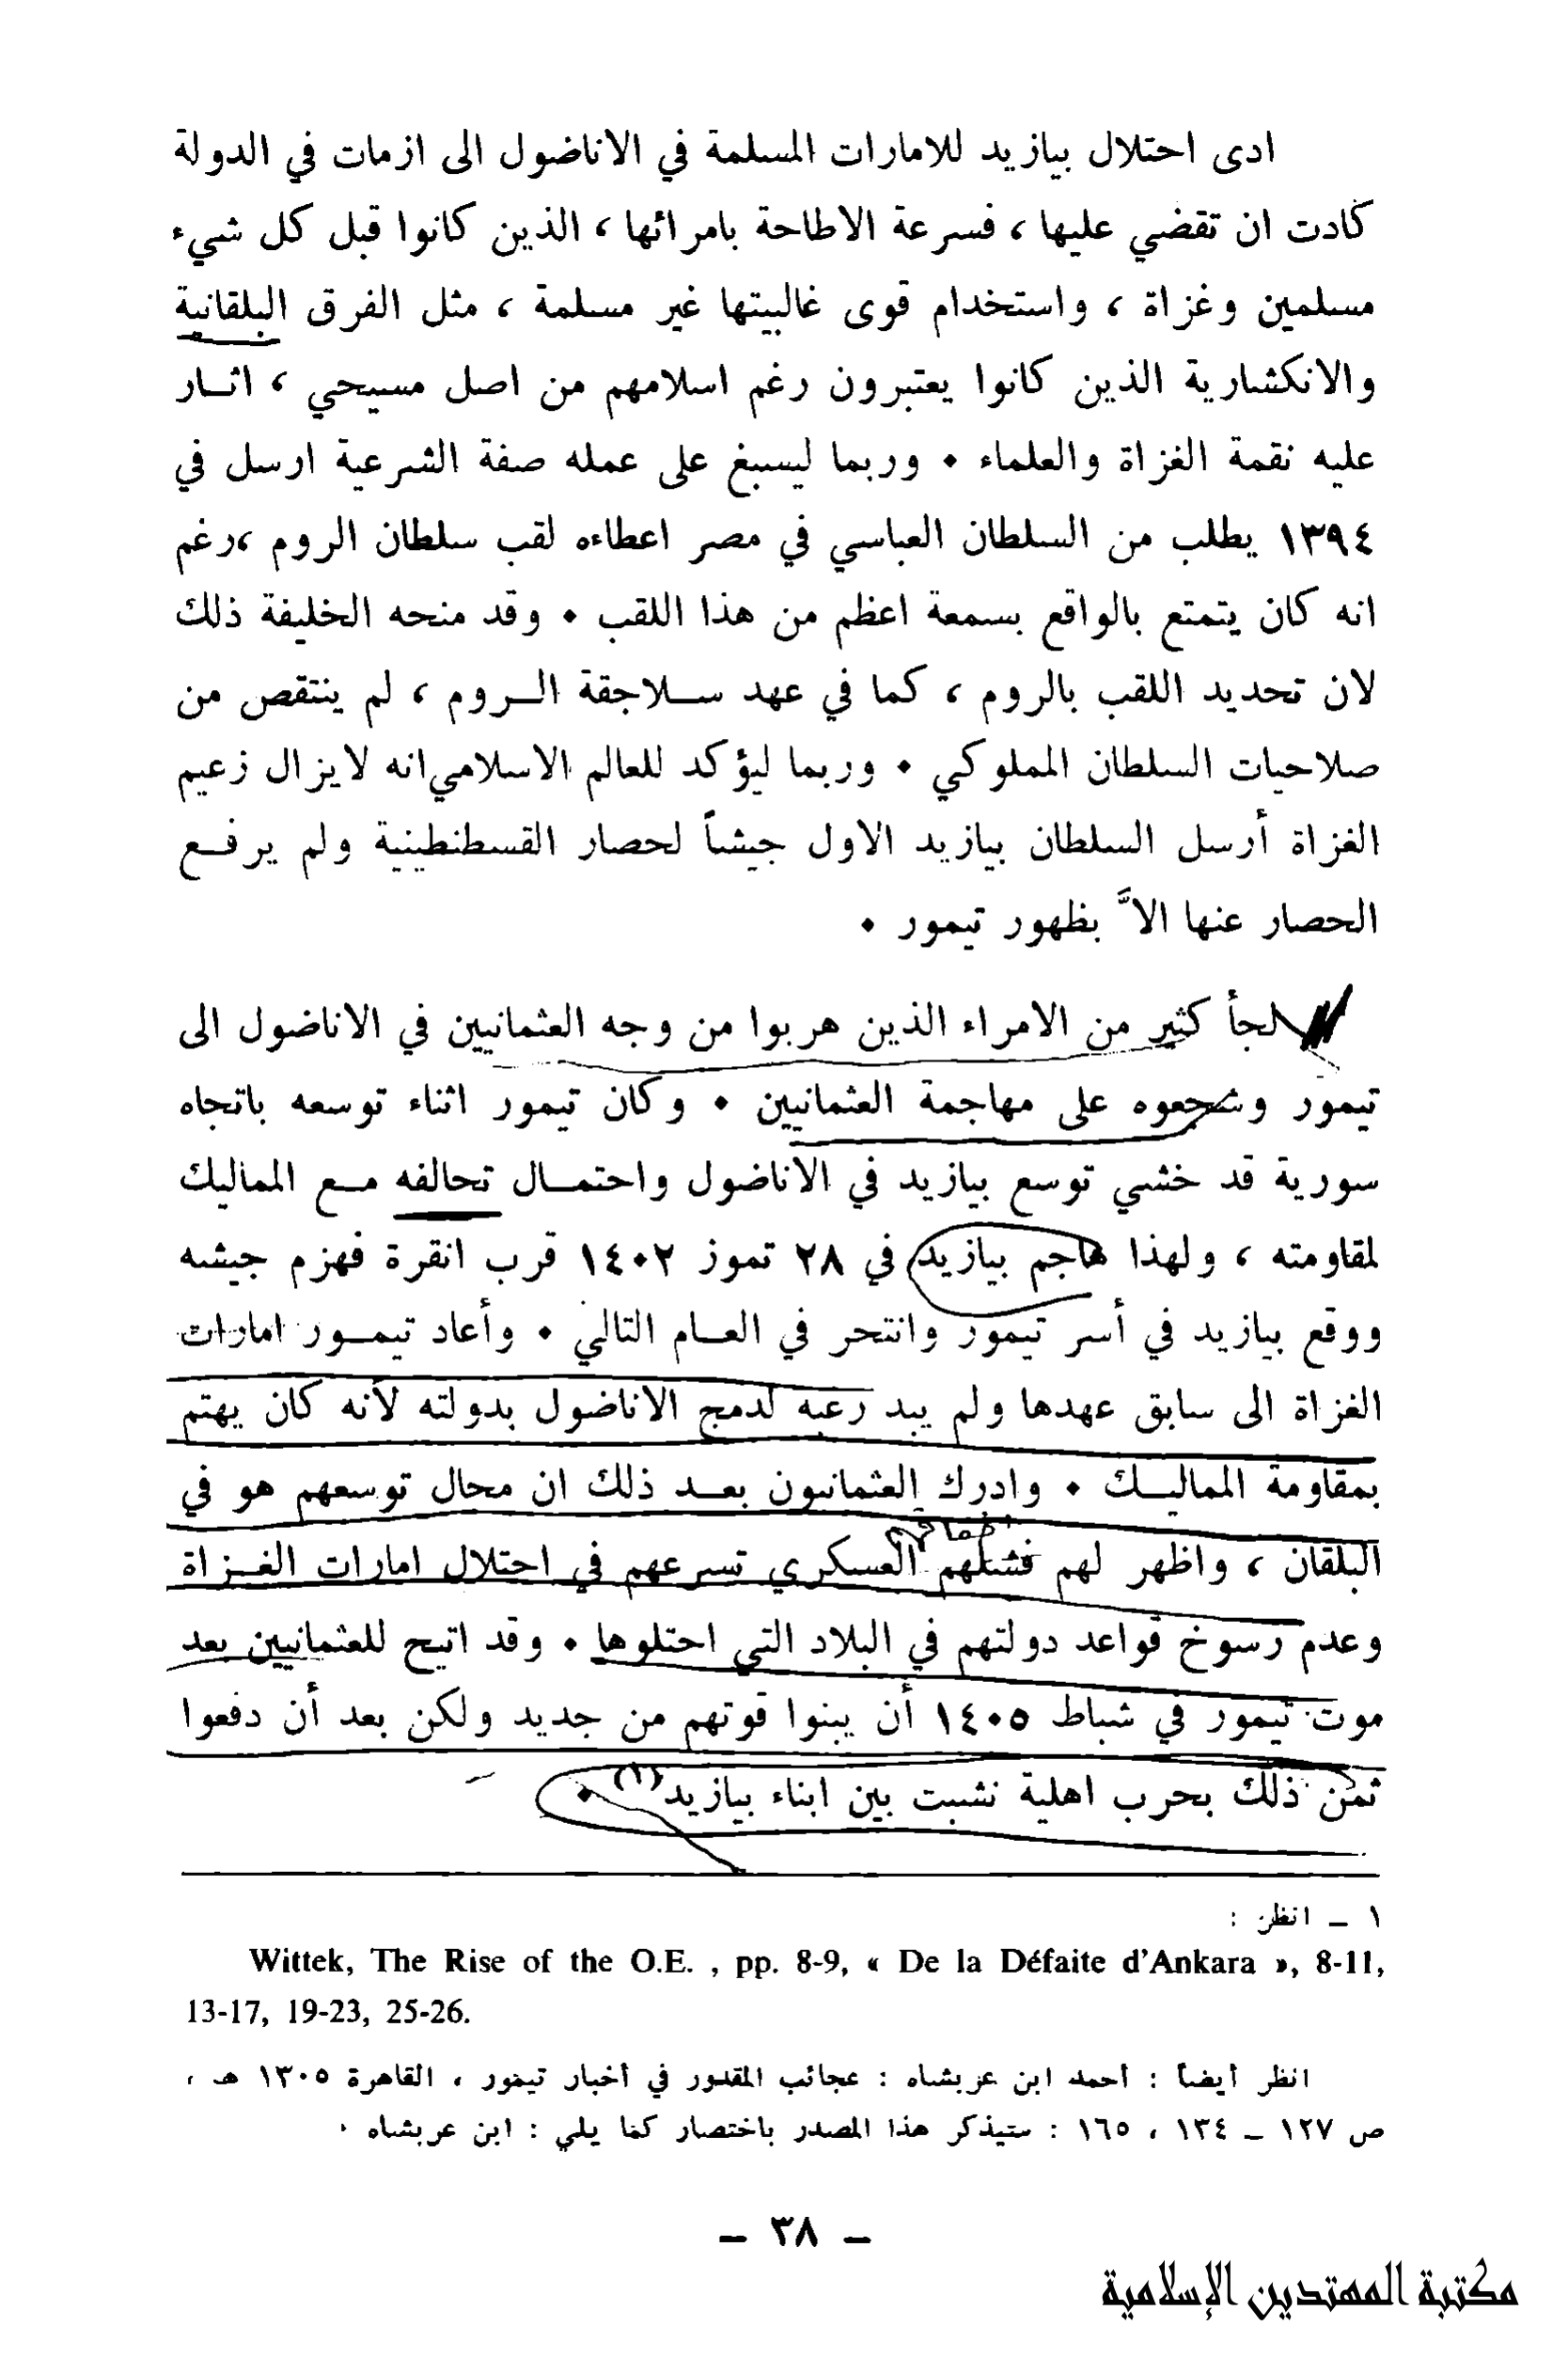 ادى احتلال بيازيد للامارات المسلمة في الاناضول الى ازمات في الدولة
كادت ان تقضي عليها ، فسرعة الاطاحة بامرائها ، الذين كانوا قبل كل شيء
مسلمين وغزاة ، واستخدام قوى غالبيتها غير مسلمة ، مثل الفرق البلقانية
والانكشارية الذين كانوا يعتبرون رغم اسلامهم من اصل مسيحي ، اثــار
عليه نقمة الغزاة والعلماء ٠ وربما ليسبغ على عمله صفة الشرعية ارسل في
١٣٩٤ يطلب من السلطان العباسي في مصر اعطاءه لقب سلطان الروم ،رغم
انه كان يتمتع بالواقع بسمعة اعظم من هذا اللقب ٠ وقد منحه الخليفة ذلك
لان تحديد اللقب بالروم ، كما في عهد ســلاجقة الــروم ، لم ينتقص من
صلاحيات السلطان المملوكي ٠ وربما ليؤكد للعالم الاسلامي انه لايزال زعيم
الغزاة أرسل السلطان بيازيد الاول جيشاً لحصار القسطنطينية ولم يرفــع
الحصار عنها الاَّ بظهور تيمور ٠
لجأ كثير من الامراء الذين هربوا من وجه العثمانيين في الاناضول الى
تيمور وشجعوه على مهاجمة العثمانيين ٠ وكان تيمور اثناء توسعه باتجاه
سورية قد خشي توسع بيازيد في الاناضول واحتمــال تحالفه مــع المماليك
لمقاومته ، ولهذا هاجم بيازيد في ٢٨ تموز ١٤٠٢ قرب انقرة فهزم جيشه
ووقع بيازيد في أسر تيمور وانتحر في العــام التالي ٠ وأعاد تيمــور امارات
الغزاة الى سابق عهدها ولم يبد رغبه لدمج الاناضول بدولته لأنه كان يهتم
بمقاومة المماليــك ٠ وادرك العثمانيون بعــد ذلك ان مجال توسعهم هو في
البلقان ، واظهر لهم فشلهم العسكري تسرعهم في احتلال امارات الغــزاة
وعدم رسوخ قواعد دولتهم في البلاد التي احتلوها ٠ وقد اتيح للعثمانيين بعد
موت تيمور في شباط ١٤٠٥ أن يبنوا قوتهم من جديد ولكن بعد أن دفعوا
ثمن ذلك بحرب اهلية نشبت بين ابناء بيازيد(١) ٠
١ ــ انظر :
Wittek, The Rise of the O.E. , pp. 8-9, « De la Défaite d'Ankara », 8-11,
13-17, 19-23, 25-26.
انظر أيضاً : أحمد ابن عربشاه : عجائب المقدور في أخبار تيمور ، القاهرة ١٣٠٥ هـ ،
ص ١٢٧ ــ ١٣٤ ، ١٦٥ : ستيذكر هذا المصدر باختصار كما يلي : ابن عربشاه ٠
ــ ٣٨ ــ
مكتبة المهتدين الإسلامية